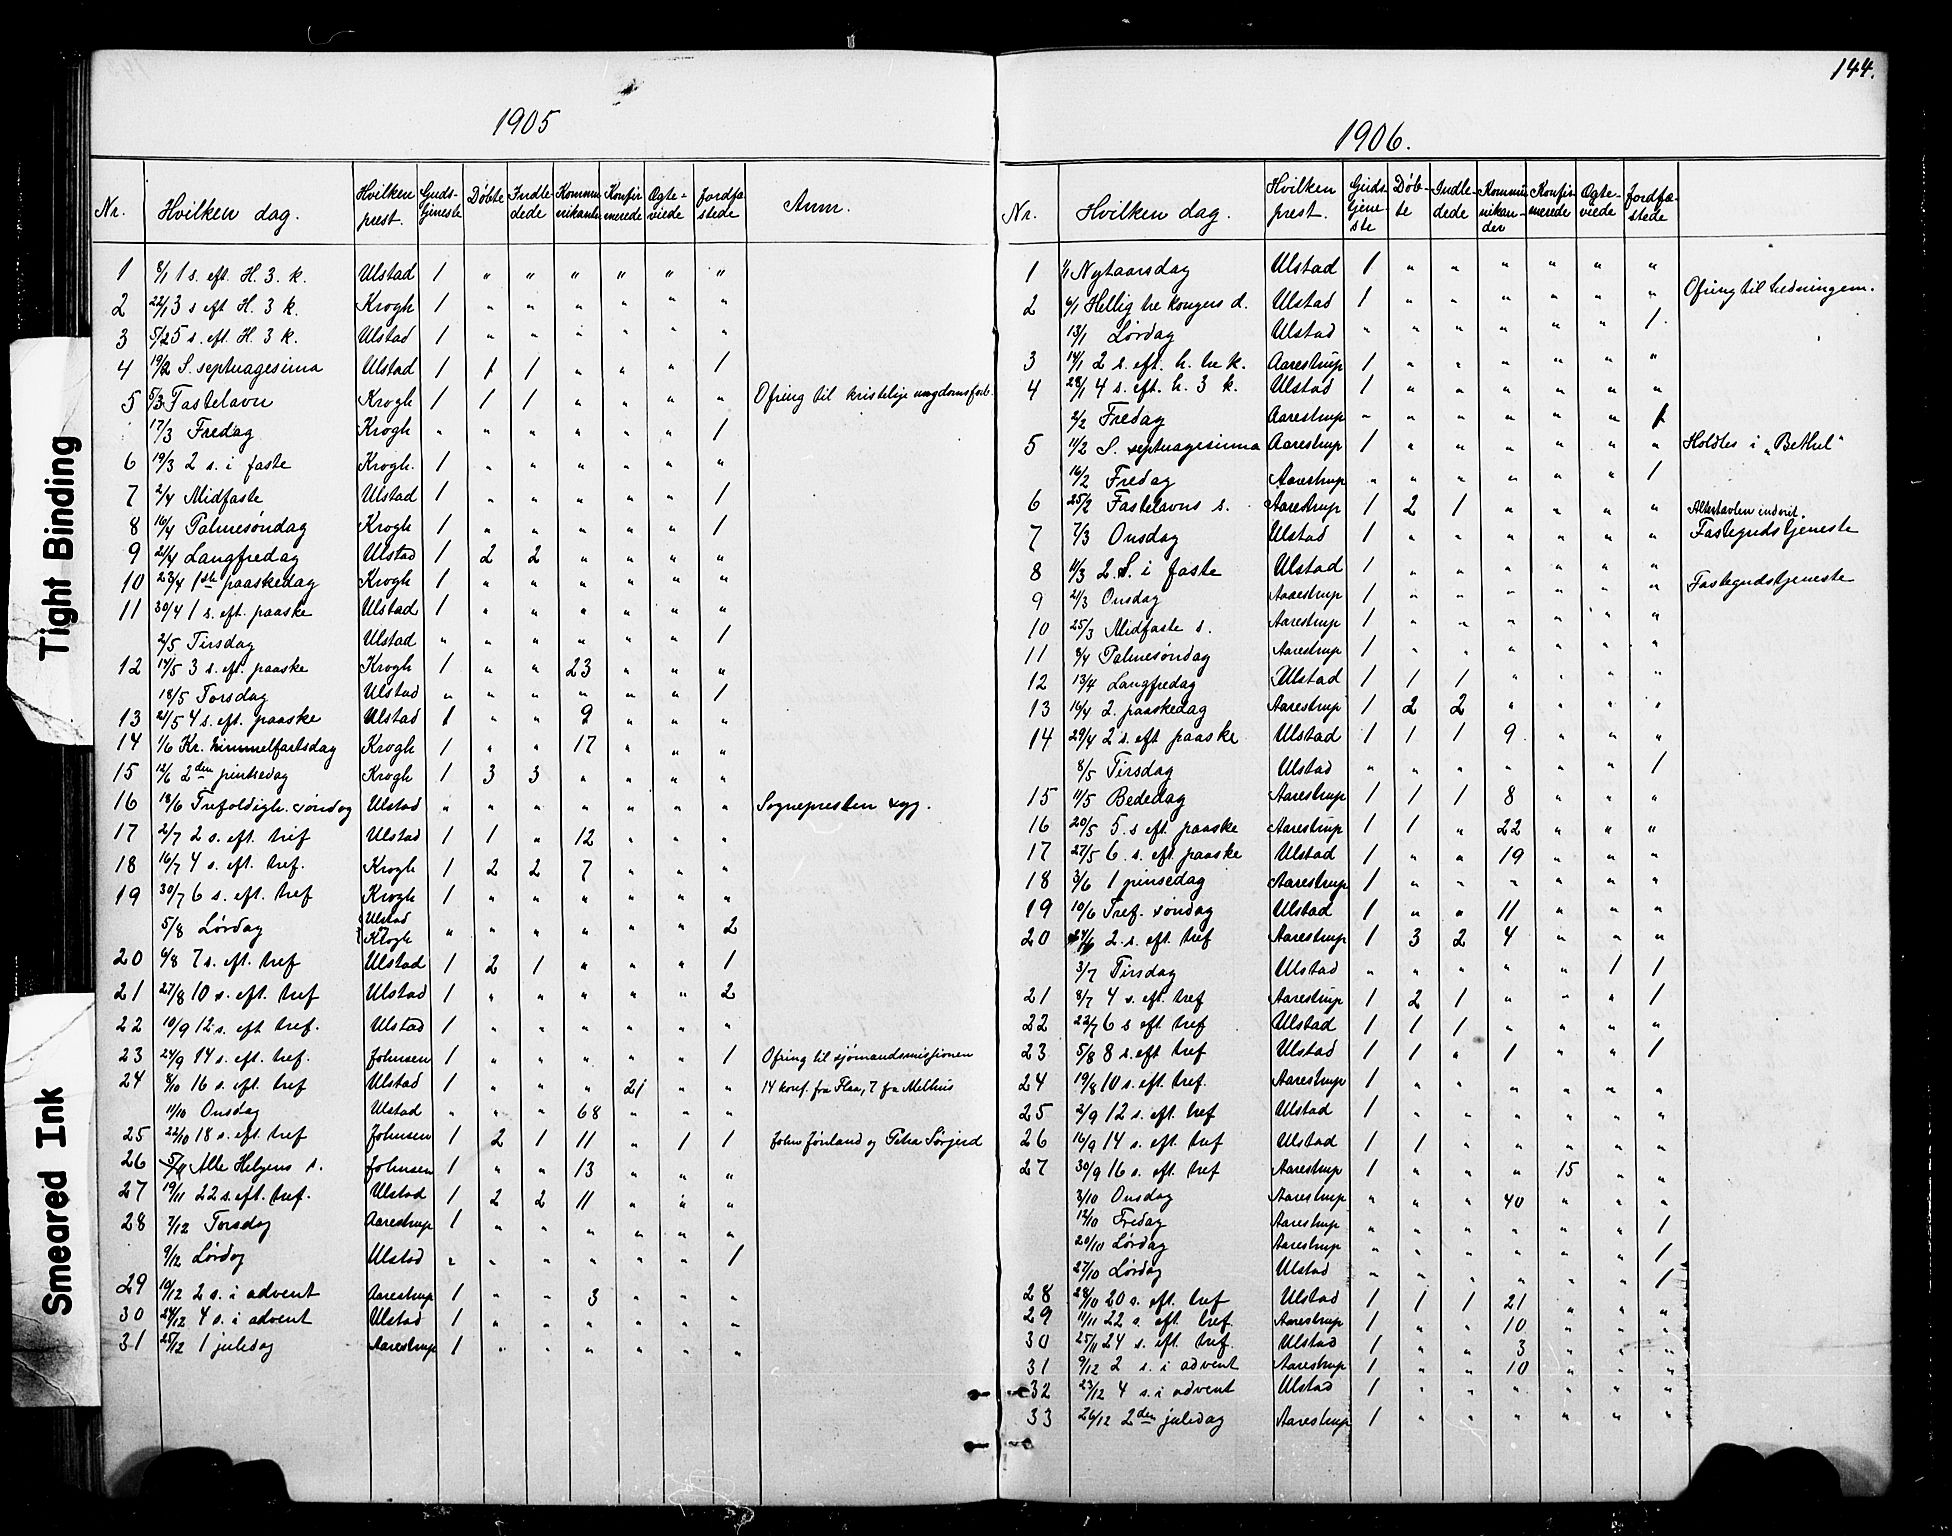 144.
Tight Binding
Smeared Ink
1905
Nr. Hvilken dag. Hvilken prest. Guds-tjeneste Døbte Indle-dede Kommu-nikanter Konfir-merede Ægte-viede Jordfæ-stede Anm.
1 8/1 1 s. eft. H. 3. k. Ulstad 1 " " " " " "
2 22/1 3 s eft H. 3 k. Krogh 1 " " " " " "
3 5/2 5 s. eft. H. 3 k. Ulstad 1 " " " " " "
4 19/2 S. septuagesima Ulstad 1 1 1 " " " 1
5 5/3 Fastelavn Krogh 1 1 1 " " " " Ofring til kristelige ungdomsforb.
17/3 Fredag Krogh " " " " " " 1
6 19/3 2 s. i faste Krogh. 1 " " " " " "
7 2/4 Midfaste Ulstad 1 " " " " " 1
8 16/4 Palmesøndag Krogh 1 " " " " " 1
9 21/4 Langfredag Ulstad 1 2 2 " " " "
10 23/4 1ste paaskedag Krogh 1 " " " " " "
11 30/4 1 s. eft. paaske Ulstad 1 " " " " " "
2/5 Tirsdag Ulstad " " " " " " 1
12 14/5 3 s. eft. paaske Krogh 1 " " 23 " " "
18/5 Torsdag Ulstad " " " " " " 1
13 21/5 4 s. eft. paaske Ulstad 1 " " 9 " " "
14 1/6 Kr. himmelfartsdag Krogh 1 " " 17 " " "
15 12/6 2den pintsedag Krogh 1 3 3 " " " "
16 18/6 Trefoldigh. søndag Ulstad " " " " " " " Sognepresten syg.
17 2/7 2 s. eft. tref Ulstad 1 1 " 12 " " "
18 16/7 4 s. eft. tref. Krogh 1 2 2 7 " " "
19 30/7 6 s. eft. tref Krogh 1 " " " " " "
5/8 Lørdag Ulstad Krogh " " " " " " 2
20 6/8 7 s. eft. tref Ulstad 1 2 1 " " " 1
21 27/8 10 s. eft. tref Ulstad 1 " " " " " 2
22 10/9 12 s. eft tref. Ulstad 1 " " " " " "
23 24/9 14 s. eft. tref. Johnsen 1 " " " " " 1 Ofring til sjømandsmisjionen
24 8/10 16 s. eft. tref Ulstad 1 " " " 21 " " 14 konf. fra Flaa, 7 fra Melhus
11/10 Onsdag Ulstad " " " 68 " " "
25 22/10 18 s. eft. tref Johnsen 1 2 1 11 " 1 1 John Jønland og Petra Sørjerd
26 5/11 Alle Helgens s. Johnsen 1 " " 13 " " "
27 19/11 22 s. eft. tref. Ulstad 1 2 2 11 " " "
28 7/12 Torsdag Aarestrup 1 " " " " " "
9/12 Lørdag Ulstad " " " " " " 1
29 10/12 2 s. i advent Aarestrup 1 " " 3 " " "
30 24/12 4 s. i advent Ulstad 1 " " " " " "
31 25/12 1 juledag Aarestrup 1 " " " " " "
1906.
Nr. Hvilken dag. Hvilken prest. Guds tjene-ste Døb-te Indle-dede Kommu-nikan-der Konfir-merede Ægte-viede Jordfæ-stede
1 1/1 Nytaarsdag Ulstad 1 " " " " " "
2 6/1 Hellig tre kongers d. Ulstad 1 " " " " " " Ofring til hedningem.
13/1 Lørdag Ulstad " " " " " " 1
3 14/1 2 s. eft. h. tre k. Aarestrup 1 " " " " " "
4 28/1 4 s. eft. h. 3 k. Ulstad 1 " " " " " "
2/2 Fredag Aarestrup " " " " " " 1
5 11/2 S. septuagesima Aarestrup 1 " " " " " " Holdtes i "Bethel"
16/2 Fredag Aarestrup " " " " " " 1
6 25/2 Fastelavns s. Aarestrup 1 2 1 " " " " Altertavlen indvit.
7 7/3 Onsdag Ulstad 1 " " " " " " Fastegudstjeneste
8 11/3 2. S. i faste Ulstad 1 " " " " " "
9 21/3 Onsdag Aarestrup 1 " " " " " " Fastegudstjeneste
10 25/3 Midfaste s. Aarestrup 1 " " " " " "
11 8/4 Palmesøndag Aarestrup 1 " " " " " "
12 13/4 Langfredag Ulstad 1 1 1 " " " "
13 16/4 2. paaskedag Aarestrup 1 2 2 " " " "
14 29/4 2 s. eft paaske Ulstad 1 1 1 9 " " "
8/5 Tirsdag Ulstad " " " " " " 1
15 11/5 Bededag Aarestrup 1 1 1 8 " " "
16 20/5 5. s eft. paaske Aarestrup 1 1 " 22 " " "
17 27/5 6. s. eft. paaske Ulstad 1 " " 19 " " "
18 3/6 1 pinsedag Aarestrup 1 " " " " " "
19 10/6 Tref. søndag Ulstad 1 " " 11 " " "
20 24/6 2. s. eft. tref Aarestrup 1 3 2 4 " " "
3/7 Tirsdag Ulstad " " " " " 1 1
21 8/7 4 s. eft. tref Aarestrup 1 2 1 " " " 1
22 22/7 6 s eft. tref Ulstad 1 1 1 " " " "
23 5/8 8 s. eft tref Ulstad 1 1 " 1 " " 1
24 19/8 10 s. eft. tref. Aarestrup 1 " " " " " "
25 2/9 12 s. eft. tref Ulstad 1 " " " " " "
26 16/9 14 s. eft. tref Ulstad 1 1 " " " " "
27 30/9 16 s. eft. tref Aarestrup 1 " " " 15 " "
3/10 Onsdag Aarestrup " " " 40 " " "
12/10 Fredag Aarestrup " " " " " " 1
20/10 Lørdag Aarestrup " " " " " " 1
27/10 Lørdag Ulstad " " " " " " 1
28 28/10 20 s. eft. tref Ulstad 1 1 1 21 " " "
29 11/11 22 s. eft. tref. Aarestrup 1 " " 10 " " "
30 25/11 24 s. eft. tref. Ulstad 1 " " 3 " " "
31 9/12 2 s. i advent Aarestrup 1 " " 10 " " "
32 23/12 4 s. i advent Ulstad 1 " " " " " "
33 26/12 2den juledag Aarestrup 1 " " " " " "